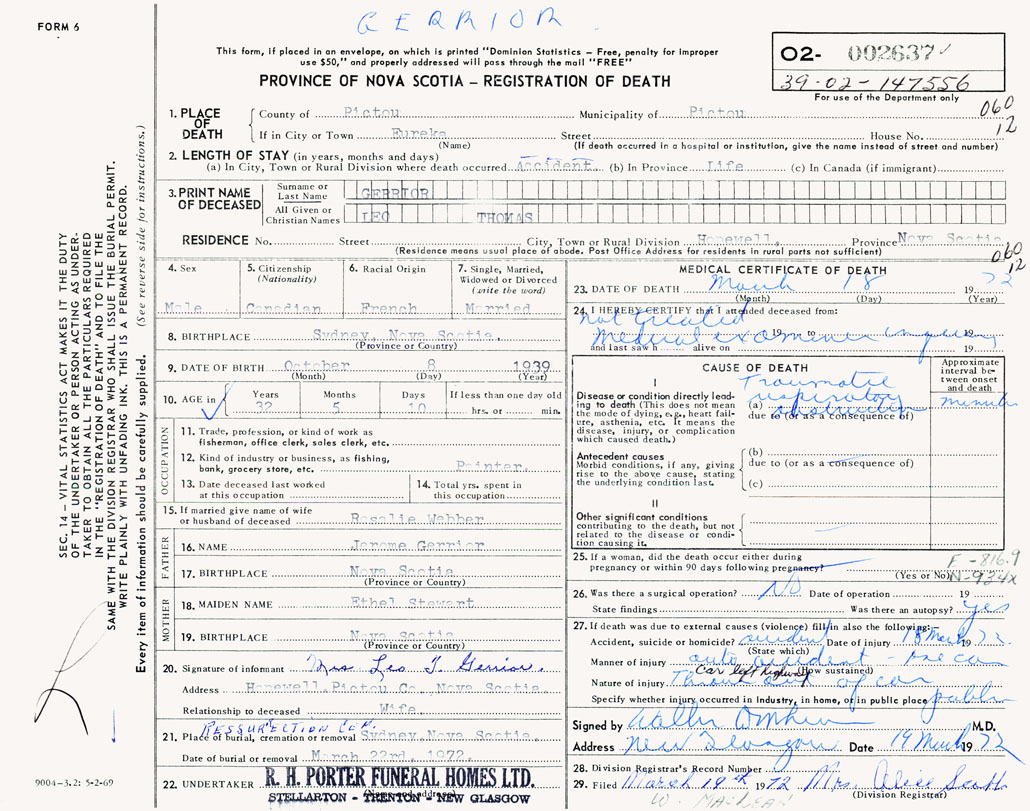 FORM 6
GERRIOR
This form, if placed in an envelope, on which is printed "Dominion Statistics – Free, penalty for improper
use $50," and properly addressed will pass through the mail "FREE"
PROVINCE OF NOVA SCOTIA – REGISTRATION OF DEATH
02- 002637
39-02-147556
For use of the Department only
060
12
SEC. 14 – VITAL STATISTICS ACT MAKES IT THE DUTY
OF THE UNDERTAKER OR PERSON ACTING AS UNDER-
TAKER TO OBTAIN ALL THE PARTICULARS REQUIRED
IN THE "REGISTRATION OF DEATH" AND TO FILE THE
SAME WITH THE DIVISION REGISTRAR WHO SHALL ISSUE THE BURIAL PERMIT.
WRITE PLAINLY WITH UNFADING INK. THIS IS A PERMANENT RECORD.
Every item of information should be carefully supplied. (See reverse side for instructions.)
1. PLACE OF DEATH
County of Pictou Municipality of Pictou
If in City or Town Eureka Street House No.
(Name) (If death occurred in a hospital or institution, give the name instead of street and number)
2. LENGTH OF STAY (in years, months and days)
(a) In City, Town or Rural Division where death occurred Accident (b) In Province Life (c) In Canada (if immigrant)
3. PRINT NAME OF DECEASED
Surname or Last Name GERRIOR
All Given or Christian Names LEO THOMAS
RESIDENCE No. Street City, Town or Rural Division Hopewell, Province Nova Scotia
(Residence means usual place of abode. Post Office Address for residents in rural parts not sufficient)
060
12
4. Sex
Male
5. Citizenship (Nationality)
Canadian
6. Racial Origin
French
7. Single, Married, Widowed or Divorced (write the word)
Married
8. BIRTHPLACE Sydney, Nova Scotia.
(Province or Country)
9. DATE OF BIRTH October 8 1939
(Month) (Day) (Year)
10. AGE in Years Months Days If less than one day old
32 5 10 hrs. or min.
OCCUPATION
11. Trade, profession, or kind of work as
fisherman, office clerk, sales clerk, etc.
12. Kind of industry or business, as fishing,
bank, grocery store, etc. Painter.
13. Date deceased last worked
at this occupation
14. Total yrs. spent in
this occupation
15. If married give name of wife
or husband of deceased Rosalie Webber
FATHER
16. NAME Jerome Gerrior
17. BIRTHPLACE Nova Scotia
(Province or Country)
MOTHER
18. MAIDEN NAME Ethel Stewart
19. BIRTHPLACE Nova Scotia
(Province or Country)
20. Signature of informant Mrs Leo T. Gerrior.
Address Hopewell, Pictou Co., Nova Scotia.
Relationship to deceased Wife.
RESSURECTION CEM.
21. Place of burial, cremation or removal Sydney, Nova Scotia.
Date of burial or removal March 22rd, 1972.
22. UNDERTAKER R. H. PORTER FUNERAL HOMES LTD.
(Name and address)
STELLARTON - TRENTON - NEW GLASGOW
9004-3.2: 5-2-69
MEDICAL CERTIFICATE OF DEATH
23. DATE OF DEATH March 18 1972
(Month) (Day) (Year)
24. I HEREBY CERTIFY that I attended deceased from:
not treated
19 to 19
Medical examiner inquiry
and last saw h alive on 19
CAUSE OF DEATH
Approximate interval between onset and death
I
Disease or condition directly lead-
ing to death (This does not mean
the mode of dying, e.g., heart fail-
ure, asthenia, etc. It means the
disease, injury, or complication
which caused death.)
(a) Traumatic respiratory obstruction
minutes
due to (or as a consequence of)
Antecedent causes
Morbid conditions, if any, giving
rise to the above cause, stating
the underlying condition last.
(b)
due to (or as a consequence of)
(c)
II
Other significant conditions
contributing to the death, but not
related to the disease or condi-
tion causing it.
25. If a woman, did the death occur either during
pregnancy or within 90 days following pregnancy?
(Yes or No)
E-816.9
N-934X
26. Was there a surgical operation? NO Date of operation 19
State findings Was there an autopsy? yes
27. If death was due to external causes (violence) fill in also the following:–
Accident, suicide or homicide? accident Date of injury 18 March 1972
(State which)
Manner of injury auto accident - one car
Car left highway (How sustained)
Nature of injury Thrown out of car
Specify whether injury occurred in Industry, in home, or in public place public
Signed by M.D.
Address New Glasgow Date 19 March 1972
28. Division Registrar's Record Number
29. Filed March 19th 1972 Mrs. Alice Scott
(Division Registrar)
W. MacLean